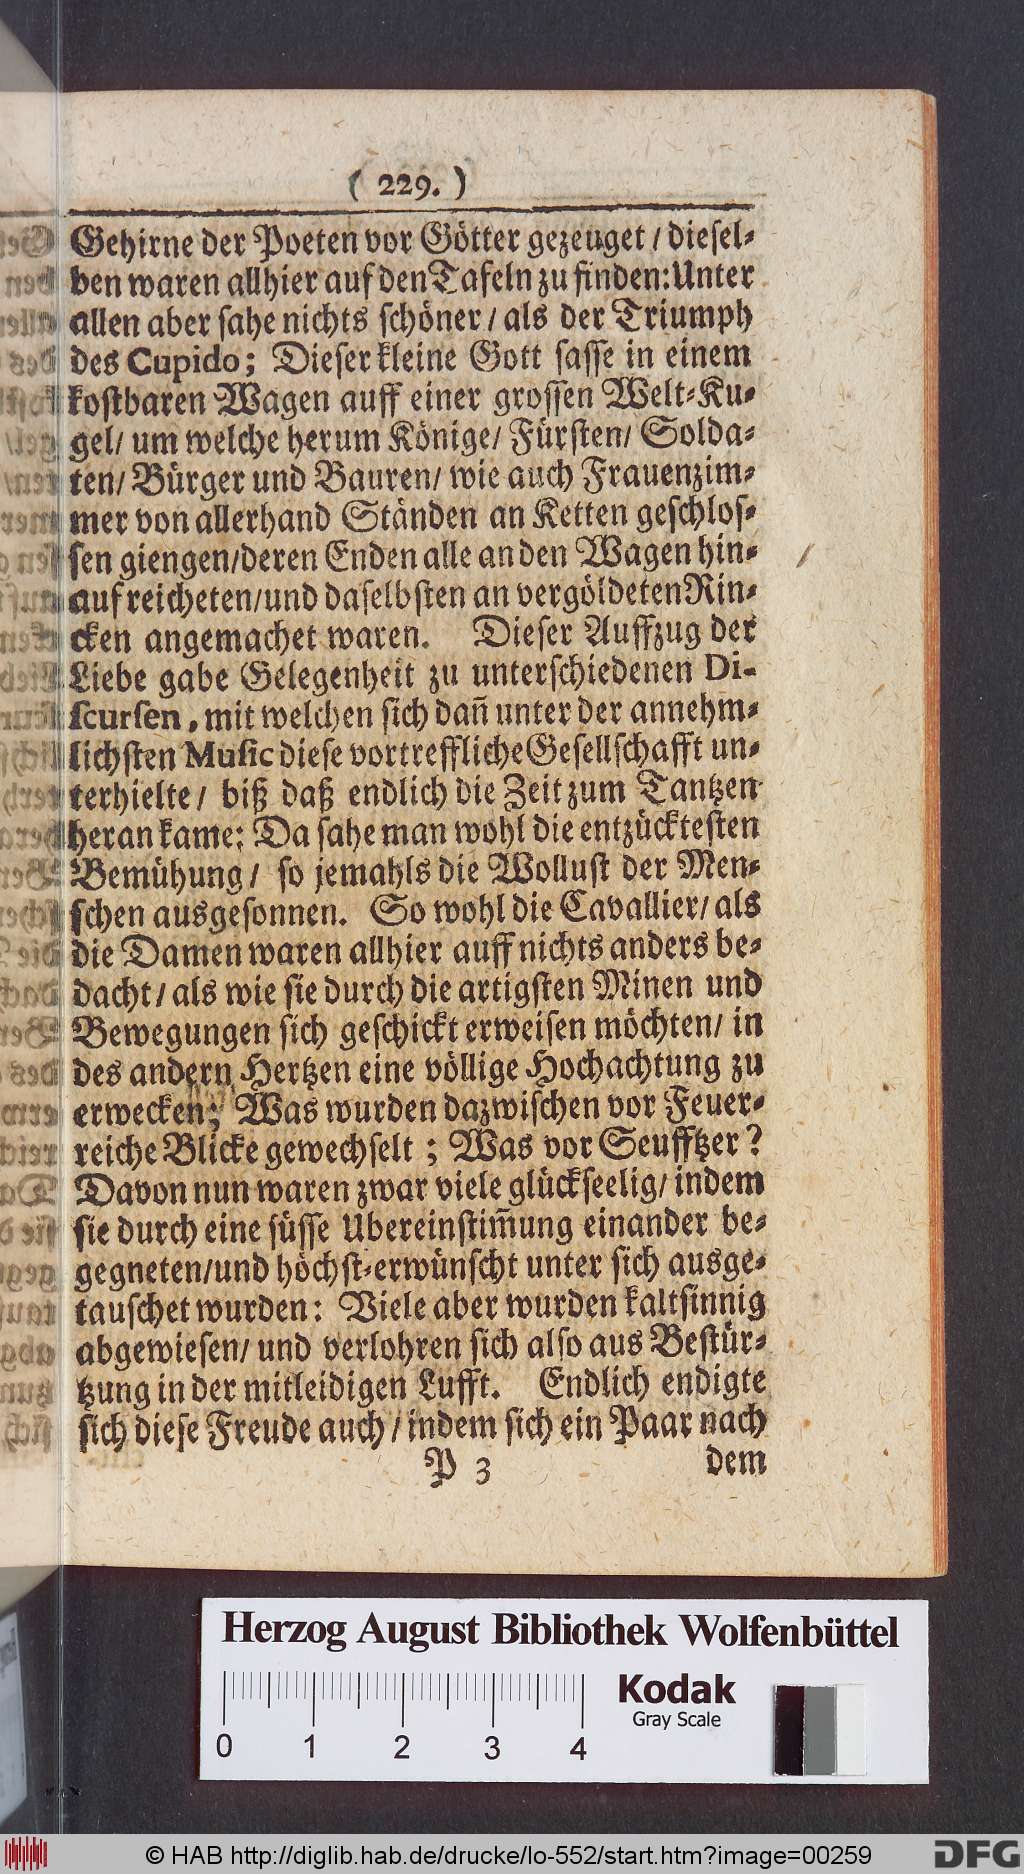 ( 229. )
Gehirne der Poeten vor Götter gezeuget / diesel⸗
ben waren allhier auf den Tafeln zu finden: Unter
allen aber sahe nichts schöner / als der Triumph
des Cupido; Dieser kleine Gott sasse in einem
kostbaren Wagen auff einer grossen Welt⸗Ku⸗
gel/ um welche herum Könige/ Fürsten/ Solda⸗
ten/ Bürger und Bauren/ wie auch Frauenzim⸗
mer von allerhand Ständen an Ketten geschlos⸗
sen giengen/deren Enden alle an den Wagen hin⸗
auf reicheten/und daselbsten an vergöldeten Rin⸗
cken angemachet waren. Dieser Auffzug der
Liebe gabe Gelegenheit zu unterschiedenen Di-
scursen, mit welchen sich dañ unter der annehm⸗
lichsten Music diese vortreffliche Gesellschafft un⸗
terhielte / biß daß endlich die Zeit zum Tantzen
heran kame: Da sahe man wohl die entzücktesten
Bemühung / so jemahls die Wollust der Men⸗
schen ausgesonnen. So wohl die Cavallier/ als
die Damen waren allhier auff nichts anders be⸗
dacht / als wie sie durch die artigsten Minen und
Bewegungen sich geschickt erweisen möchten/ in
des andern Hertzen eine völlige Hochachtung zu
erwecken; Was wurden dazwischen vor Feuer⸗
reiche Blicke gewechselt ; Was vor Seufftzer ?
Davon nun waren zwar viele glückseelig/ indem
sie durch eine süsse Ubereinstim̃ung einander be⸗
gegneten/und höchst⸗erwünscht unter sich ausge⸗
tauschet wurden: Viele aber wurden kaltsinnig
abgewiesen/ und verlohren sich also aus Bestür⸗
tzung in der mitleidigen Lufft. Endlich endigte
sich diese Freude auch / indem sich ein Paar nach
P 3 dem
Herzog August Bibliothek Wolfenbüttel
0 1 2 3 4
Kodak
Gray Scale
© HAB http://diglib.hab.de/drucke/lo-552/start.htm?image=00259
DFG